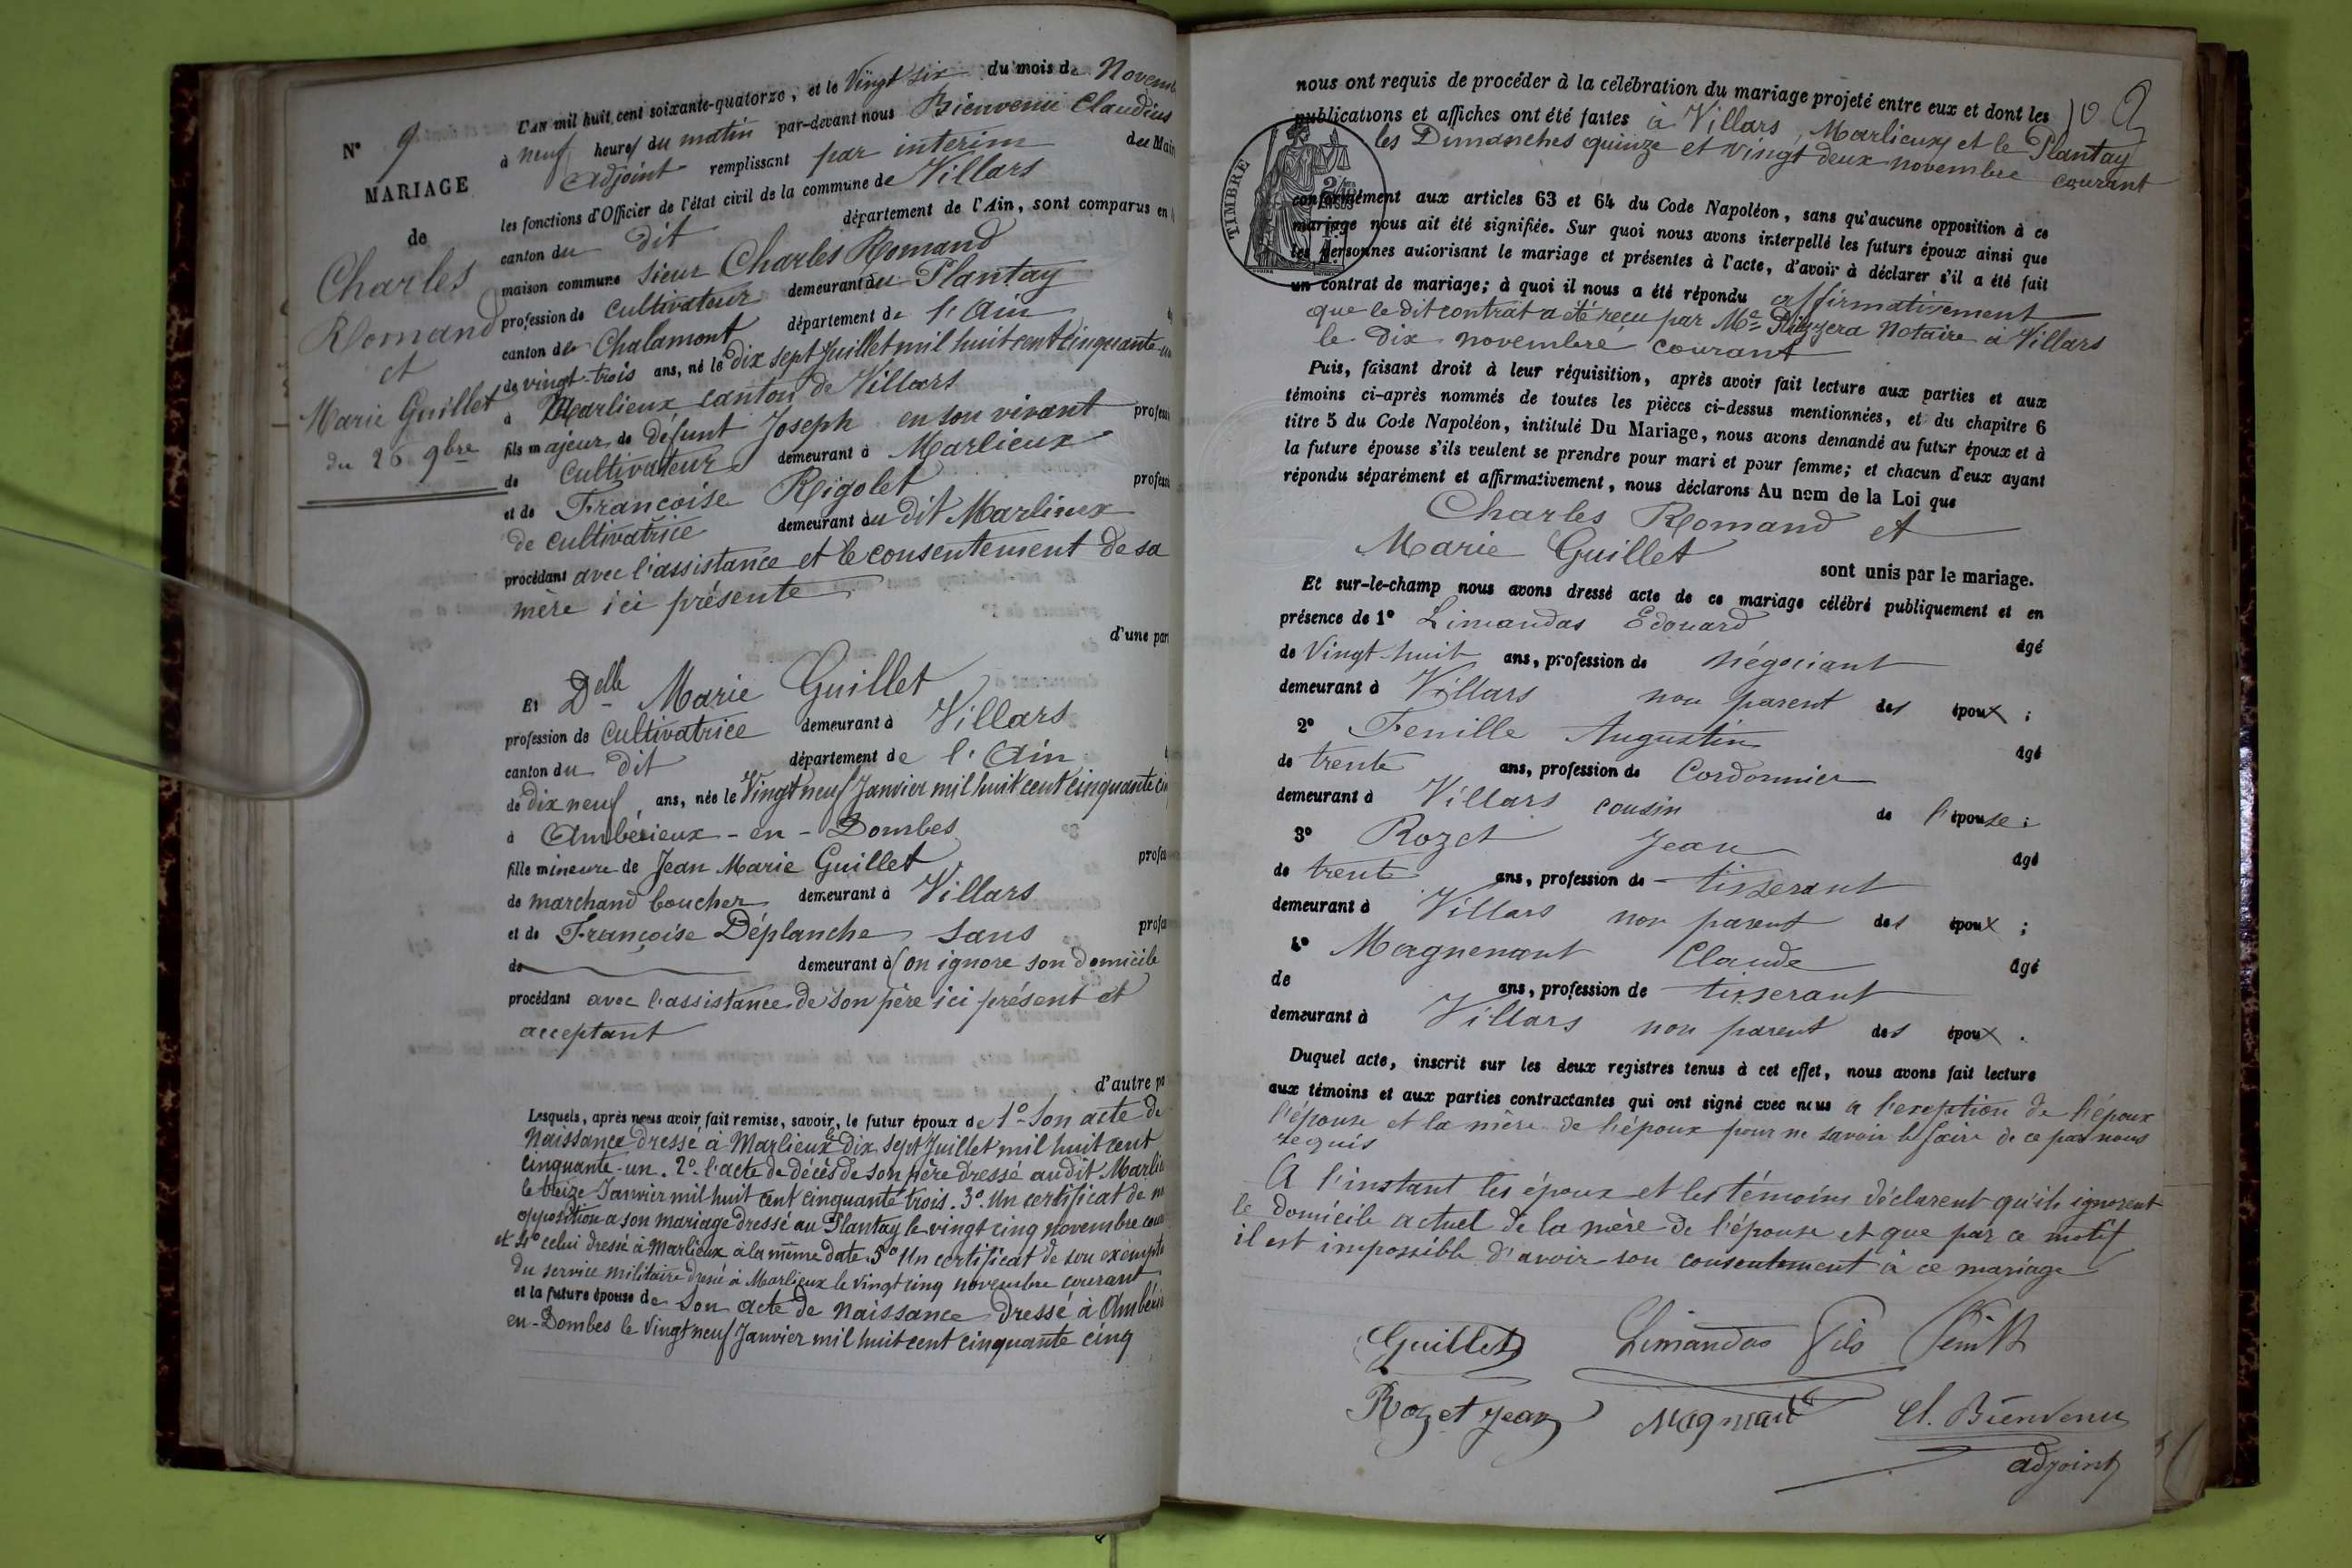 N° 9
MARIAGE
de
Charles
Romand
et
Marie Guillet
du 26 9bre
L'AN mil huit cent soixante-quatorze, et le Vingt six du mois de Novemb
à neuf heures du matin par-devant nous Bienvenu Claudius
adjoint remplissant par interim
les fonctions d'Officier de l'état civil de la commune de Villars
canton du dit département de l'Ain, sont comparus en
maison commune sieur Charles Romand
profession de cultivateur demeurant au Plantay
canton de Chalamont département de l'Ain
de vingt-trois ans, né le dix sept Juillet mil huit cent cinquante-un
à Marlieux canton de Villars
fils majeur de défunt Joseph en son vivant profess
de Cultivateur demeurant à Marlieux
et de Françoise Rigolet profess
de cultivatrice demeurant au dit Marlieux
procédant avec l'assistance et le consentement de sa
mère ici présente
d'une part
Et Delle Marie Guillet
profession de Cultivatrice demeurant à Villars
canton du dit département de l'Ain
de dix neuf ans, née le Vingt neuf Janvier mil huit cent cinquante cin
à Ambérieux-en-Dombes
fille mineure de Jean Marie Guillet profes
de marchand boucher demeurant à Villars
et de Françoise Déplanche sans profes
de demeurant à (on ignore son domicile
procédant avec l'assistance de son père ici présent et
acceptant
d'autre pa
Lesquels, après nous avoir fait remise, savoir, le futur époux de 1° Son acte de
Naissance dressé à Marlieux le dix sept Juillet mil huit cent
cinquante-un. 2° l'acte de décès de son père dressé audit Marlie
le treize Janvier mil huit cent cinquante trois. 3° Un certificat de n
opposition a son mariage dressé au Plantay le vingt cinq novembre cour
et 4° celui dressé à Marlieux à la même date. 5° Un certificat de son exempté
du service militaire dressé à Marlieux le vingt cinq novembre courant
et la future épouse de Son acte de Naissance dressé à Ambérie
en-Dombes le Vingt neuf Janvier mil huit cent cinquante cinq
nous ont requis de procéder à la célébration du mariage projeté entre eux et dont les
publications et affiches ont été faites à Villars, Marlieux et le Plantay
les Dimanches quinze et vingt deux novembre courant
TIMBRE
conformément aux articles 63 et 64 du Code Napoléon, sans qu'aucune opposition à ce
mariage nous ait été signifiée. Sur quoi nous avons interpellé les futurs époux ainsi que
les personnes autorisant le mariage et présentes à l'acte, d'avoir à déclarer s'il a été fait
un contrat de mariage; à quoi il nous a été répondu affirmativement
que le dit contrat a été reçu par Me Notaire à Villars
le dix novembre courant
Puis, faisant droit à leur réquisition, après avoir fait lecture aux parties et aux
témoins ci-après nommés de toutes les pièces ci-dessus mentionnées, et du chapitre 6
titre 5 du Code Napoléon, intitulé Du Mariage, nous avons demandé au futur époux et à
la future épouse s'ils veulent se prendre pour mari et pour femme; et chacun d'eux ayant
répondu séparément et affirmativement, nous déclarons Au nom de la Loi que
Charles Romand et
Marie Guillet
sont unis par le mariage.
Et sur-le-champ nous avons dressé acte de ce mariage célébré publiquement et en
présence de 1° Limandas Edouard âgé
de Vingt-huit ans, profession de Négociant
demeurant à Villars non parent des époux ;
2° Fenille Augustin âgé
de trente ans, profession de Cordonnier
demeurant à Villars cousin de l'épouse ;
3° Rozet Jean âgé
de trente ans, profession de tisserant
demeurant à Villars non parent des époux ;
4° Magnenant Claude âgé
de ans, profession de tisserant
demeurant à Villars non parent des époux .
Duquel acte, inscrit sur les deux registres tenus à cet effet, nous avons fait lecture
aux témoins et aux parties contractantes qui ont signé avec nous a l'exeption de l'époux
l'épouse et la mère de l'époux pour ne savoir le faire de ce par nous
requis
A l'instant les époux et les témoins déclarent qu'ils ignorent
le domicile actuel de la mère de l'épouse et que par ce motif
il est impossible d'avoir son consentement à ce mariage
Guillet Limandas fils
Rozet Jean Cl. Bienvenu
adjoint